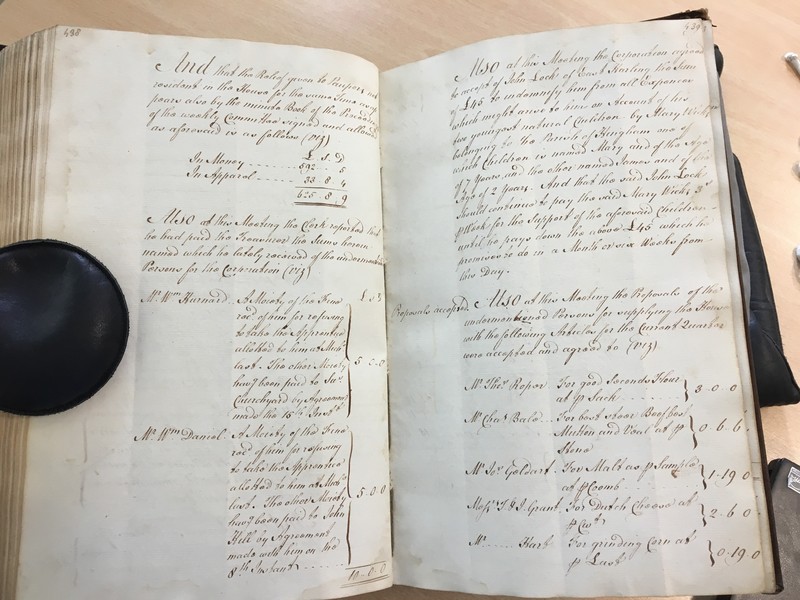 438
And that the Relief given to Paupers not
resident in the House for the same time ap=
pears also by the minute Book of the Proceed
of the weekly Committee signed and allowed
as aforesaid is as follows (viz)
£ s d
In Money 592 .. 5
In Apparel 33 8 4
625 . 8 . 9
Also at this Meeting the Clerk reported that
he had paid the Treasurer the Sums herein
named which he lately received of the undermentd.
Persons for the Corporation (viz)
£ s d
Mr. Wm. Harnard . A Moiety of the Fine
recd. of him for refusing
to take the Apprentice
allotted to him at Michs.
last. The other Moiety
havg. been paid to
Churchyard by Agreement
made the 15th. Inst.
5 - 5 - 0
Mr. Wm. Daniel . A Moiety of the Fine
recd. of him for refusing
to take the Apprentice
allotted to him at Michs.
last. The other Moiety
havg. been paid to John
Hill by Agreement
made with him on the
8th. Instant
5 - 0 - 0
10 - 0 - 0
439
Also at this Meeting the Corporation agreed
to accept of John Lock of East Harling the Sum
of £45 to indemnify him from all Expences
which might arise to him on Account of his
two youngest natural Children by Mary
belonging to the Parish of Hingham one of
which Children is named Mary and of the Age
of 7 Years, and the other named James and of the
Age of 2 Years. And that the said John Lock
should continue to pay the said Mary 3s
p Week for the Support of the aforesaid Children
until he pays down the above £45 which he
promises to do in a Month or six Weeks from
this Day.
Proposals accepted
Also at this Meeting the Proposals of the
undermentioned Persons for supplying the House
with the following Articles for the Current Quarter
were accepted and agreed to (viz)
Mr. Thos. Roper For good Seconds Flour
at p Sack
3 - 0 - 0
Mr. Chas. Bale For best Steer Beef
Mutton and Veal at p
Stone
0 - 6 - 6
Mr. Jas. Goldart For Malt as p Sample
at p Coomb
1 - 19 - 0
Messrs. T. & J. Grant For Dutch Cheese at
p Cwt.
2 - 6 - 0
Mr. Hart For grinding Corn at
p Last
0 - 19 0